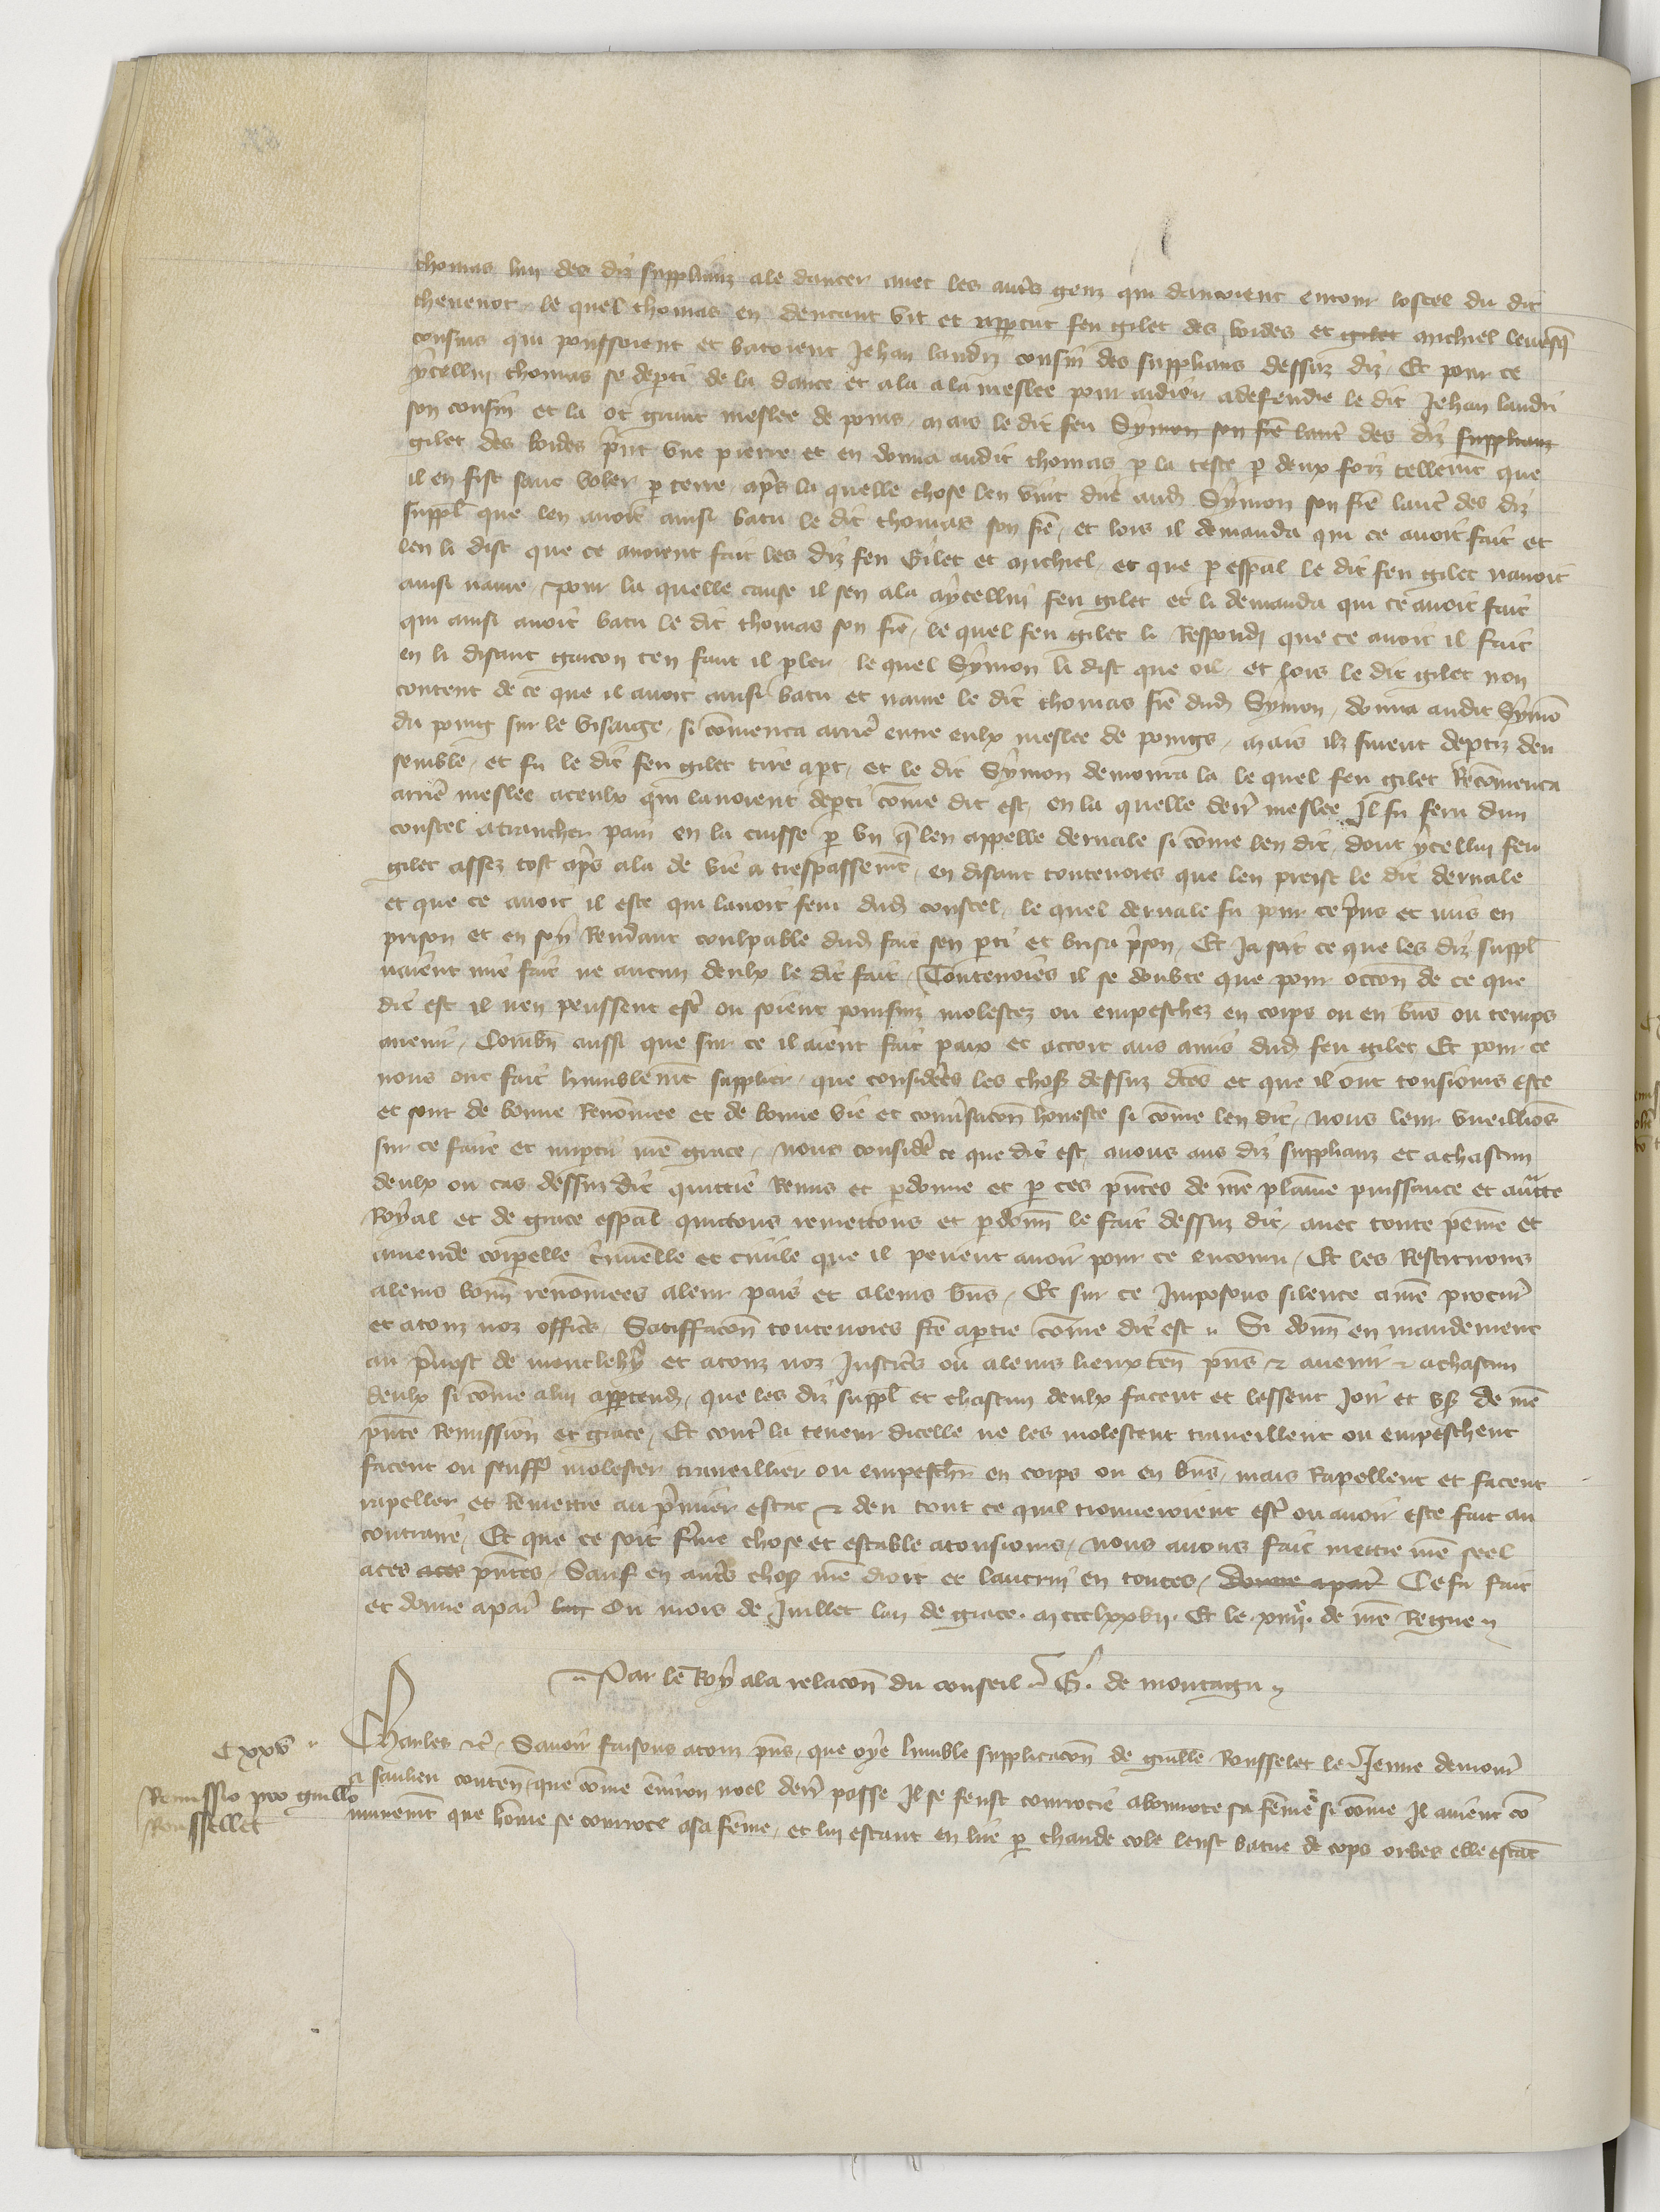 thomas lun des diz supplianz ale dancer avec les autres genz qui dancoient entour lostel du dit
thevenot le quel thomas en dencant vit et appercut feu gilet des bordes et gilet michiel levesq
cousins qui poussoient et batoient Jehan landri cousin des supplians dessuz diz Et pour ce
ycellui thomas se departi de la dance et ala a la meslee pour aidier a defendre le dit Jehan landri
son cousin et la ot grant meslee de poins mais le dit feu Symon son frere lautre des diz supplianz
gilet des bordes prist une pierre et en donna audit thomas par la teste par deux foiz tellement que
il en fist sanc voler par terre apres la quelle chose len vint dire aud Symon son frere lautre des diz
suppl que len avoit ainsi batu le dit thomas son frere et lors il demanda qui ce avoit fait et
len li dist que ce avoient fait les diz feu Gilet et michiel et que par espal le dit feu gilet lavoit
ainsi navre pour la quelle cause il sen ala a ycellui feu gilet et li demanda qui ce avoit fait
qui ainsi avoit batu le dit thomas son frere le quel feu gilet li Respond que ce avoit il fait
en li disant garcon ten faut il parler le quel Symon li dist que oil et lors le dit gilet non
content de ce que il avoit ainsi batu et navre le dit thomas frere dud Symon donna audit Symon
du poing sur le visaige si commenca arriere entre eulx meslee de poings mais ilz furent departiz den
semble et fu le dit feu gilet tire apart et le dit Symon demoura la le quel feu gilet Recommenca
arriere meslee a ceulx qui lavoient departi comme dit est en la quelle derr meslee Il fu feru dun
coustel a trancher pain en la cuisse par un que len appelle dervale si comme len dit dont ycellui feu
gilet assez tost apres ala de vie a trespassement en disant toutevoies que len preist le dit dervale
et que ce avoit il este qui lavoit feru dud coustel le quel dervale fu pour ce prins et mis en
prison et en soy Rendant coulpable dud fait sen parti et brisa prison Et Ja soit ce que les diz suppl
naient mie fait ne aucun deulx le dit fait Toutevoies il se doubte que pour occon de ce que
dit est il nen peussent estre ou soient poursuiz molestez ou empeschez en corps ou en biens ou temps
avenir Combien aussi que sur ce il aient fait paix et accort aus amis dud feu gilet Et pour ce
nous ont fait humblement supplier que considerees les choses dessuz dctes et que il ont tousiours este
et sont de bonne Renommee et de bonne vie et conversacon honeste si comme len dit Nous leur vueillions
sur ce faire et impartir nostre grace Nous consider ce que dit est avons aus diz supplianz et a chascun
deulx ou cas dessus dit quittie Remis et pardonne et par ces presentes de nostre plaine puissance et auctte
Royal et de grace espal quictons remettons et pardonn le fait dessuz dit avec toute peine et
amende corpelle criminelle et civile que il pevent avoir pour ce encouru Et les Restituons
a leurs bonn renommees a leur pais et a leurs biens Et sur ce Imposons silence a nostre procur
et a touz noz officiers Satiffacon toutevoies fcte a partie comme dit est Si donn en mandement
au prevost de montlehery et a touz noz Justiciers ou a leurs lieuxten presens et avenir et a chascun
deulx si comme a lui appartend que les diz suppl et chascun deulx facent et lessent Joir et user de nostre
presente Remission et grace Et contre la teneur dicelle ne les molestent traveillent ou empeschent
facent ou seuffr molester traveillier ou empescher en corps ou en biens mais Rapellent et facent
rapeller et Remettre au premier estat et deu tout ce quil trouveroient estre ou avoir este fait au
contraire Et que ce soit ferme chose et estable a tousiours Nous avons fait mettre nostre seel
a ces aces presentes Sauf en autres choses nostre droit et lautrui en toutes Donne a paris Ce fu fait
et donne a paris lan Ou mois de Juillet lan de grace mccclxxvii Et le xiiije de nostre Regne
Par le Roy a la relacon du conseil G. de montagu
Cxxv
Charles etc Savoir faisons a touz presens que oye lumble supplicacon de guille Rousselet le Jeune demour
Remissio pro guillo
Roussellet
a saulieu conten que comme environ noel derr passe Il se feust courrocie a bonnote sa femme si comme Il avient co
munement que homme se courroce a sa femme et lui estant en lire par chaude cole leust batue de cops orbes elle estant